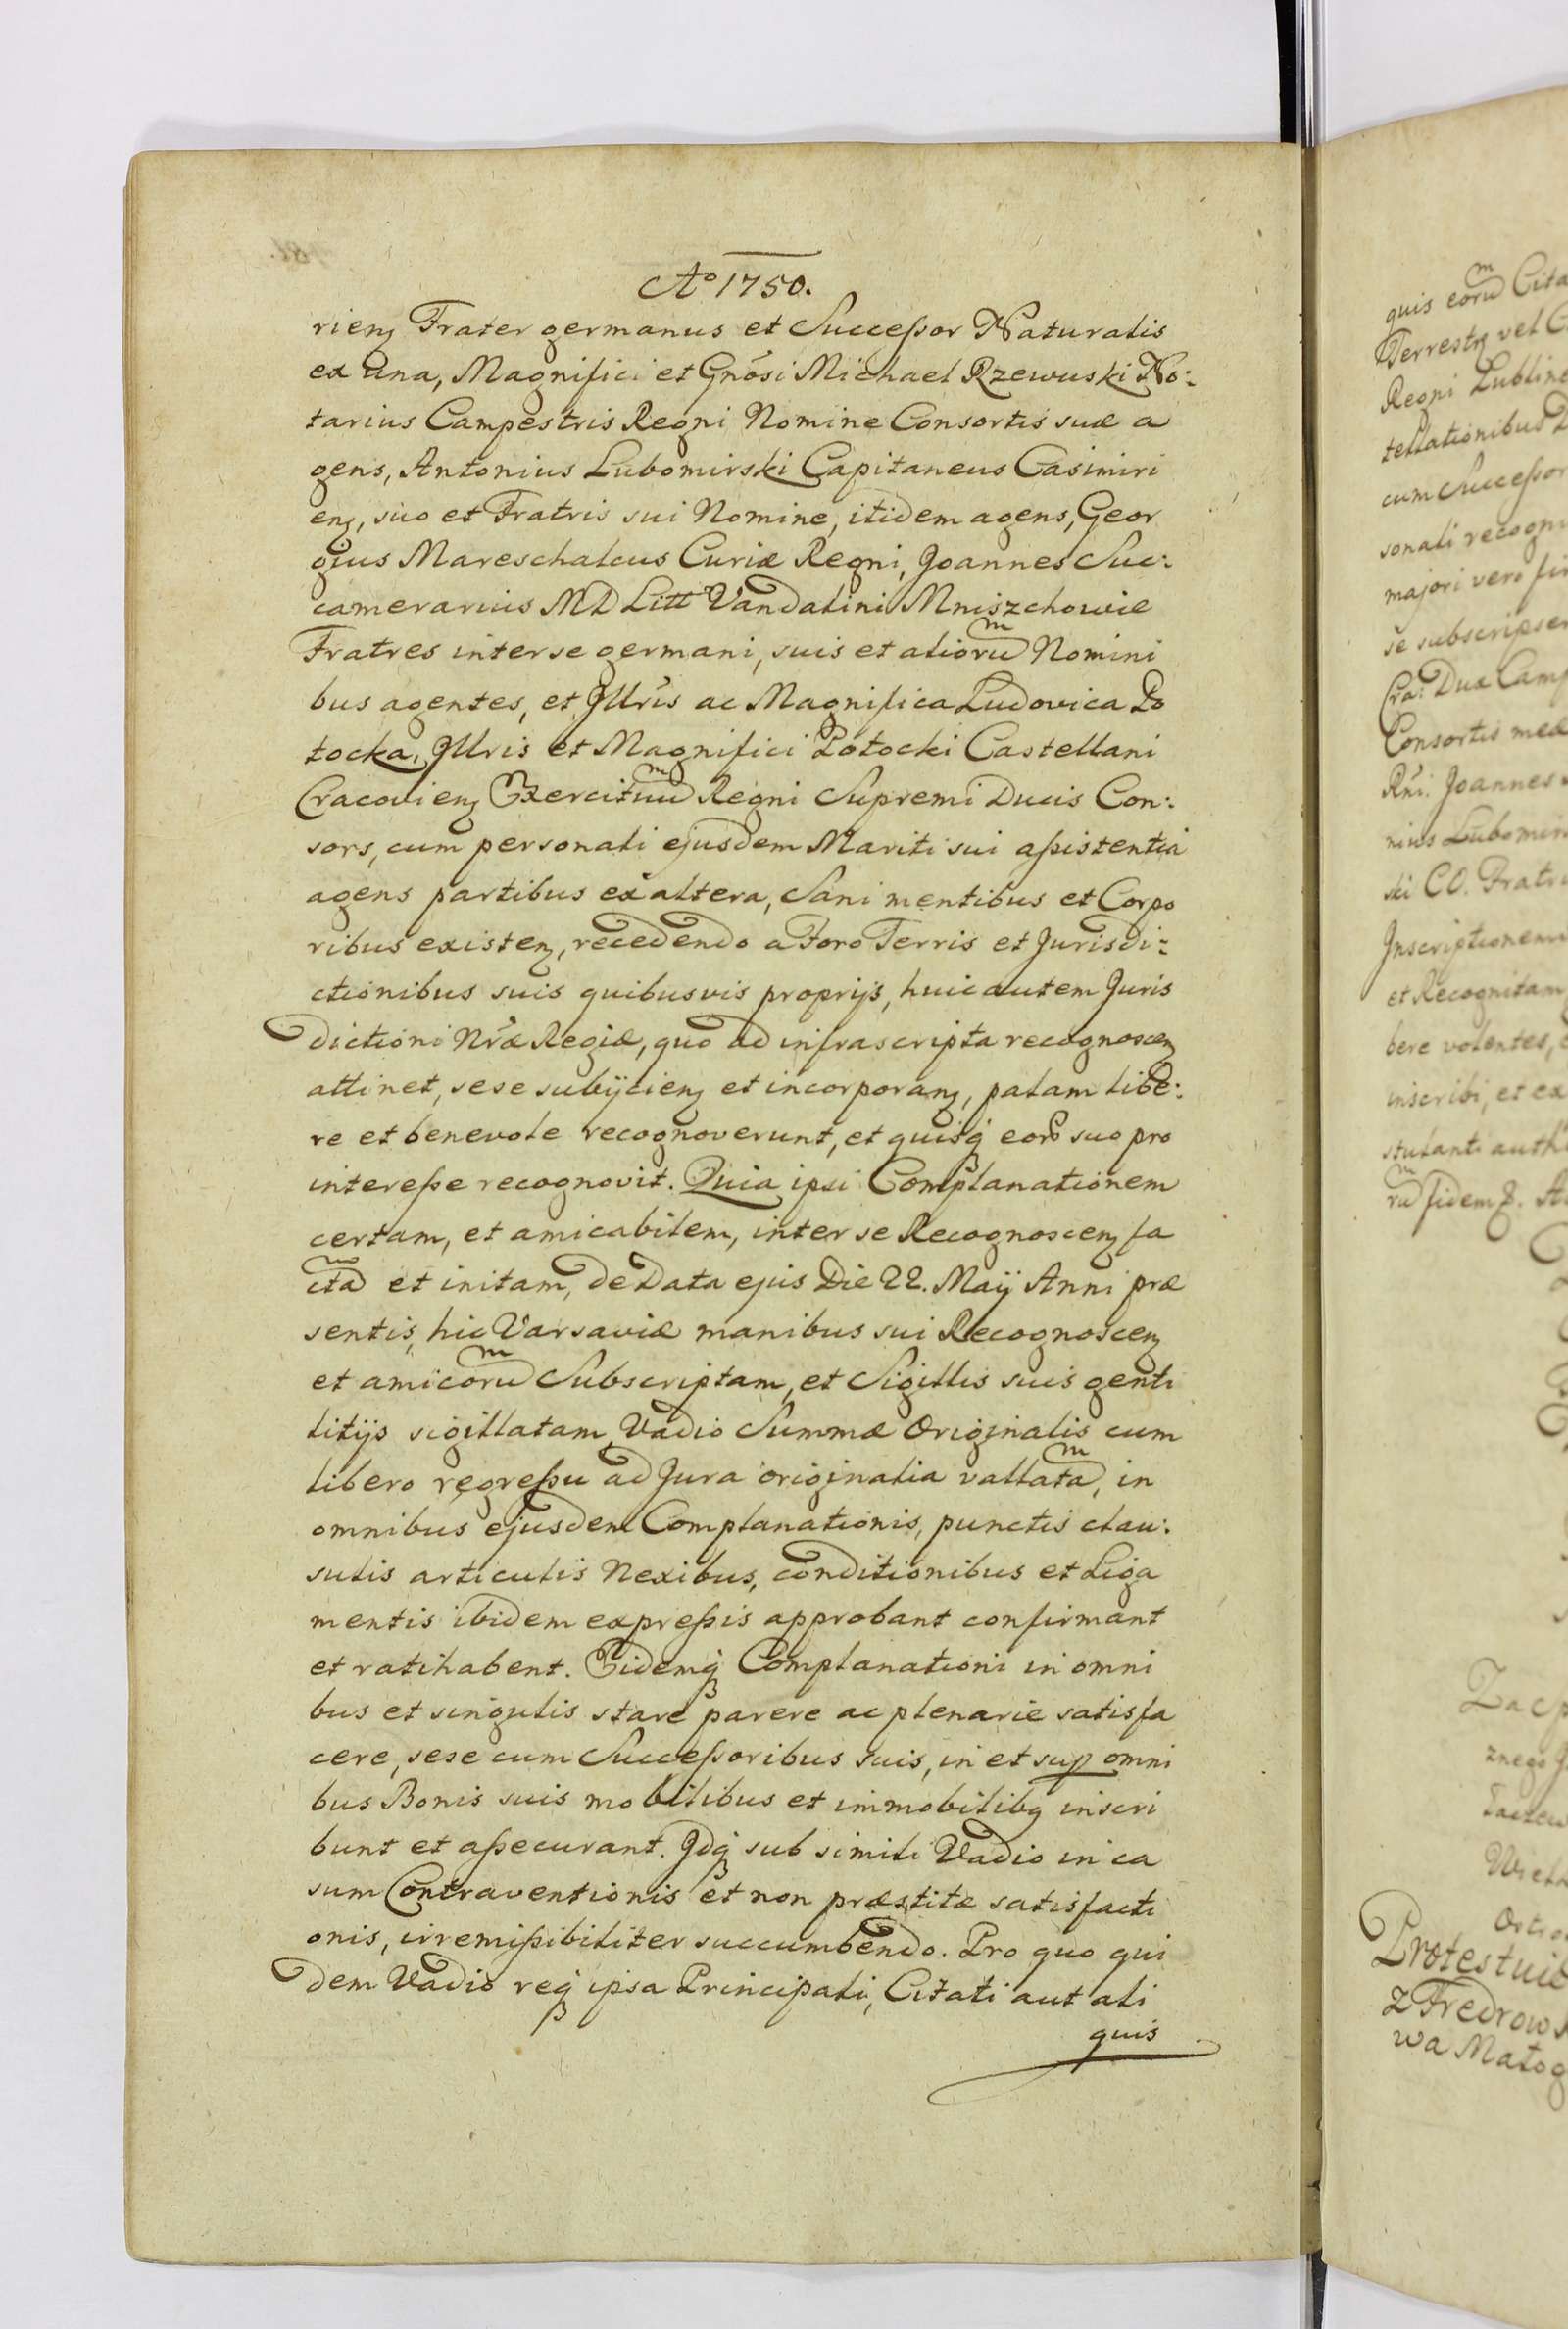 Aº 1750.
rienꝫ Frater germanus et Succeſsor Naturalis
ex una, Magnifici et Gnõsi Michael Rzewuski No:
tarius Campestris Regni Nomine Consortis suæ a
gens, Antonius Lubomirski Capitaneus Casimiri
enꝫ, suo et Fratris sui Nomine, itidem agens, Geor
gius Mareschalcus Curiæ Regni, Joannes Suc:
camerarius MD Litt Vandalini Mniszchowie
Fratres inter se germani, suis et alioru͠ Nomini
bus agentes, et Jllr̃is ac Magnifica Ludovica Po
tocka, Jllris et Magnifici Potocki Castellani
Cracovienꝫ Exercituu͠ Regni Supremi Ducis Con:
sors, cum personali ejusdem Mariti sui aſsistentia
agens partibus ex altera, Sani mentibus et Corpo
ribus existenꝫ, recedendo a Foro Terris et Jurisdi:
ctionibus suis quibusvis proprijs, huic autem Juris
dictioni Nr̃æ Regiæ, quo ad infrascripta recognoscenꝫ
attinet, sese subijcienꝫ et incorporanꝫ, palam libe:
re et benevole recognoverunt, et quisq̃ eorꝫ suo pro
intereſse recognovit. Quia ipsi Complanationem
certam, et amicabilem, inter se Recognoscenꝫ fa
cta͠ et initam, de Data ejus Die 22. Maij Anni præ
sentis, hic Varsaviæ manibus sui Recognoscenꝫ
et amicoru͠ Subscriptam, et Sigillis suis genti
litijs sigillatam, Vadio Summæ Originalis cum
libero regreſsu ad Jura originalia vallata͠, in
omnibus ejusdem Complanationis, punctis clau:
sulis articulis Nexibus, conditionibus et Liga
mentis ibidem expreſsis approbant confirmant
et ratihabent. Eidemq̃ Complanationi in omni
bus et singulis stare parere ac plenarie satisfa
cere, sese cum Succeſsoribus suis, in et sup omni
bus Bonis suis mobilibus et immobilibꝫ inscri
bunt et aſsecurant. Jdq̃ sub simili Vadio in ca
sum Contraventionis et non præstitæ satisfacti
onis, irremiſsibiliter succumbendo. Pro quo qui
dem Vadio req̃ ipsa Principali, Citati aut ali
quis
quis eoru͠ Cita
Terrestꝫ vel
Regni Lubline
tellationibus
cum Succeſsor
sonali recogn
majori vero
se subscripser
Cra: Dux Camp
Consortis meæ
Rñi: Joannes
nius Lubomir
ski CO. Fratr
Jnscriptionem
et Recognitam
bere volentes,
inscribi, et ex
stulanti auth
ru͠ fidem
Zacp
znego
Wiel
Protestuie
z Fredrow
wa Małog